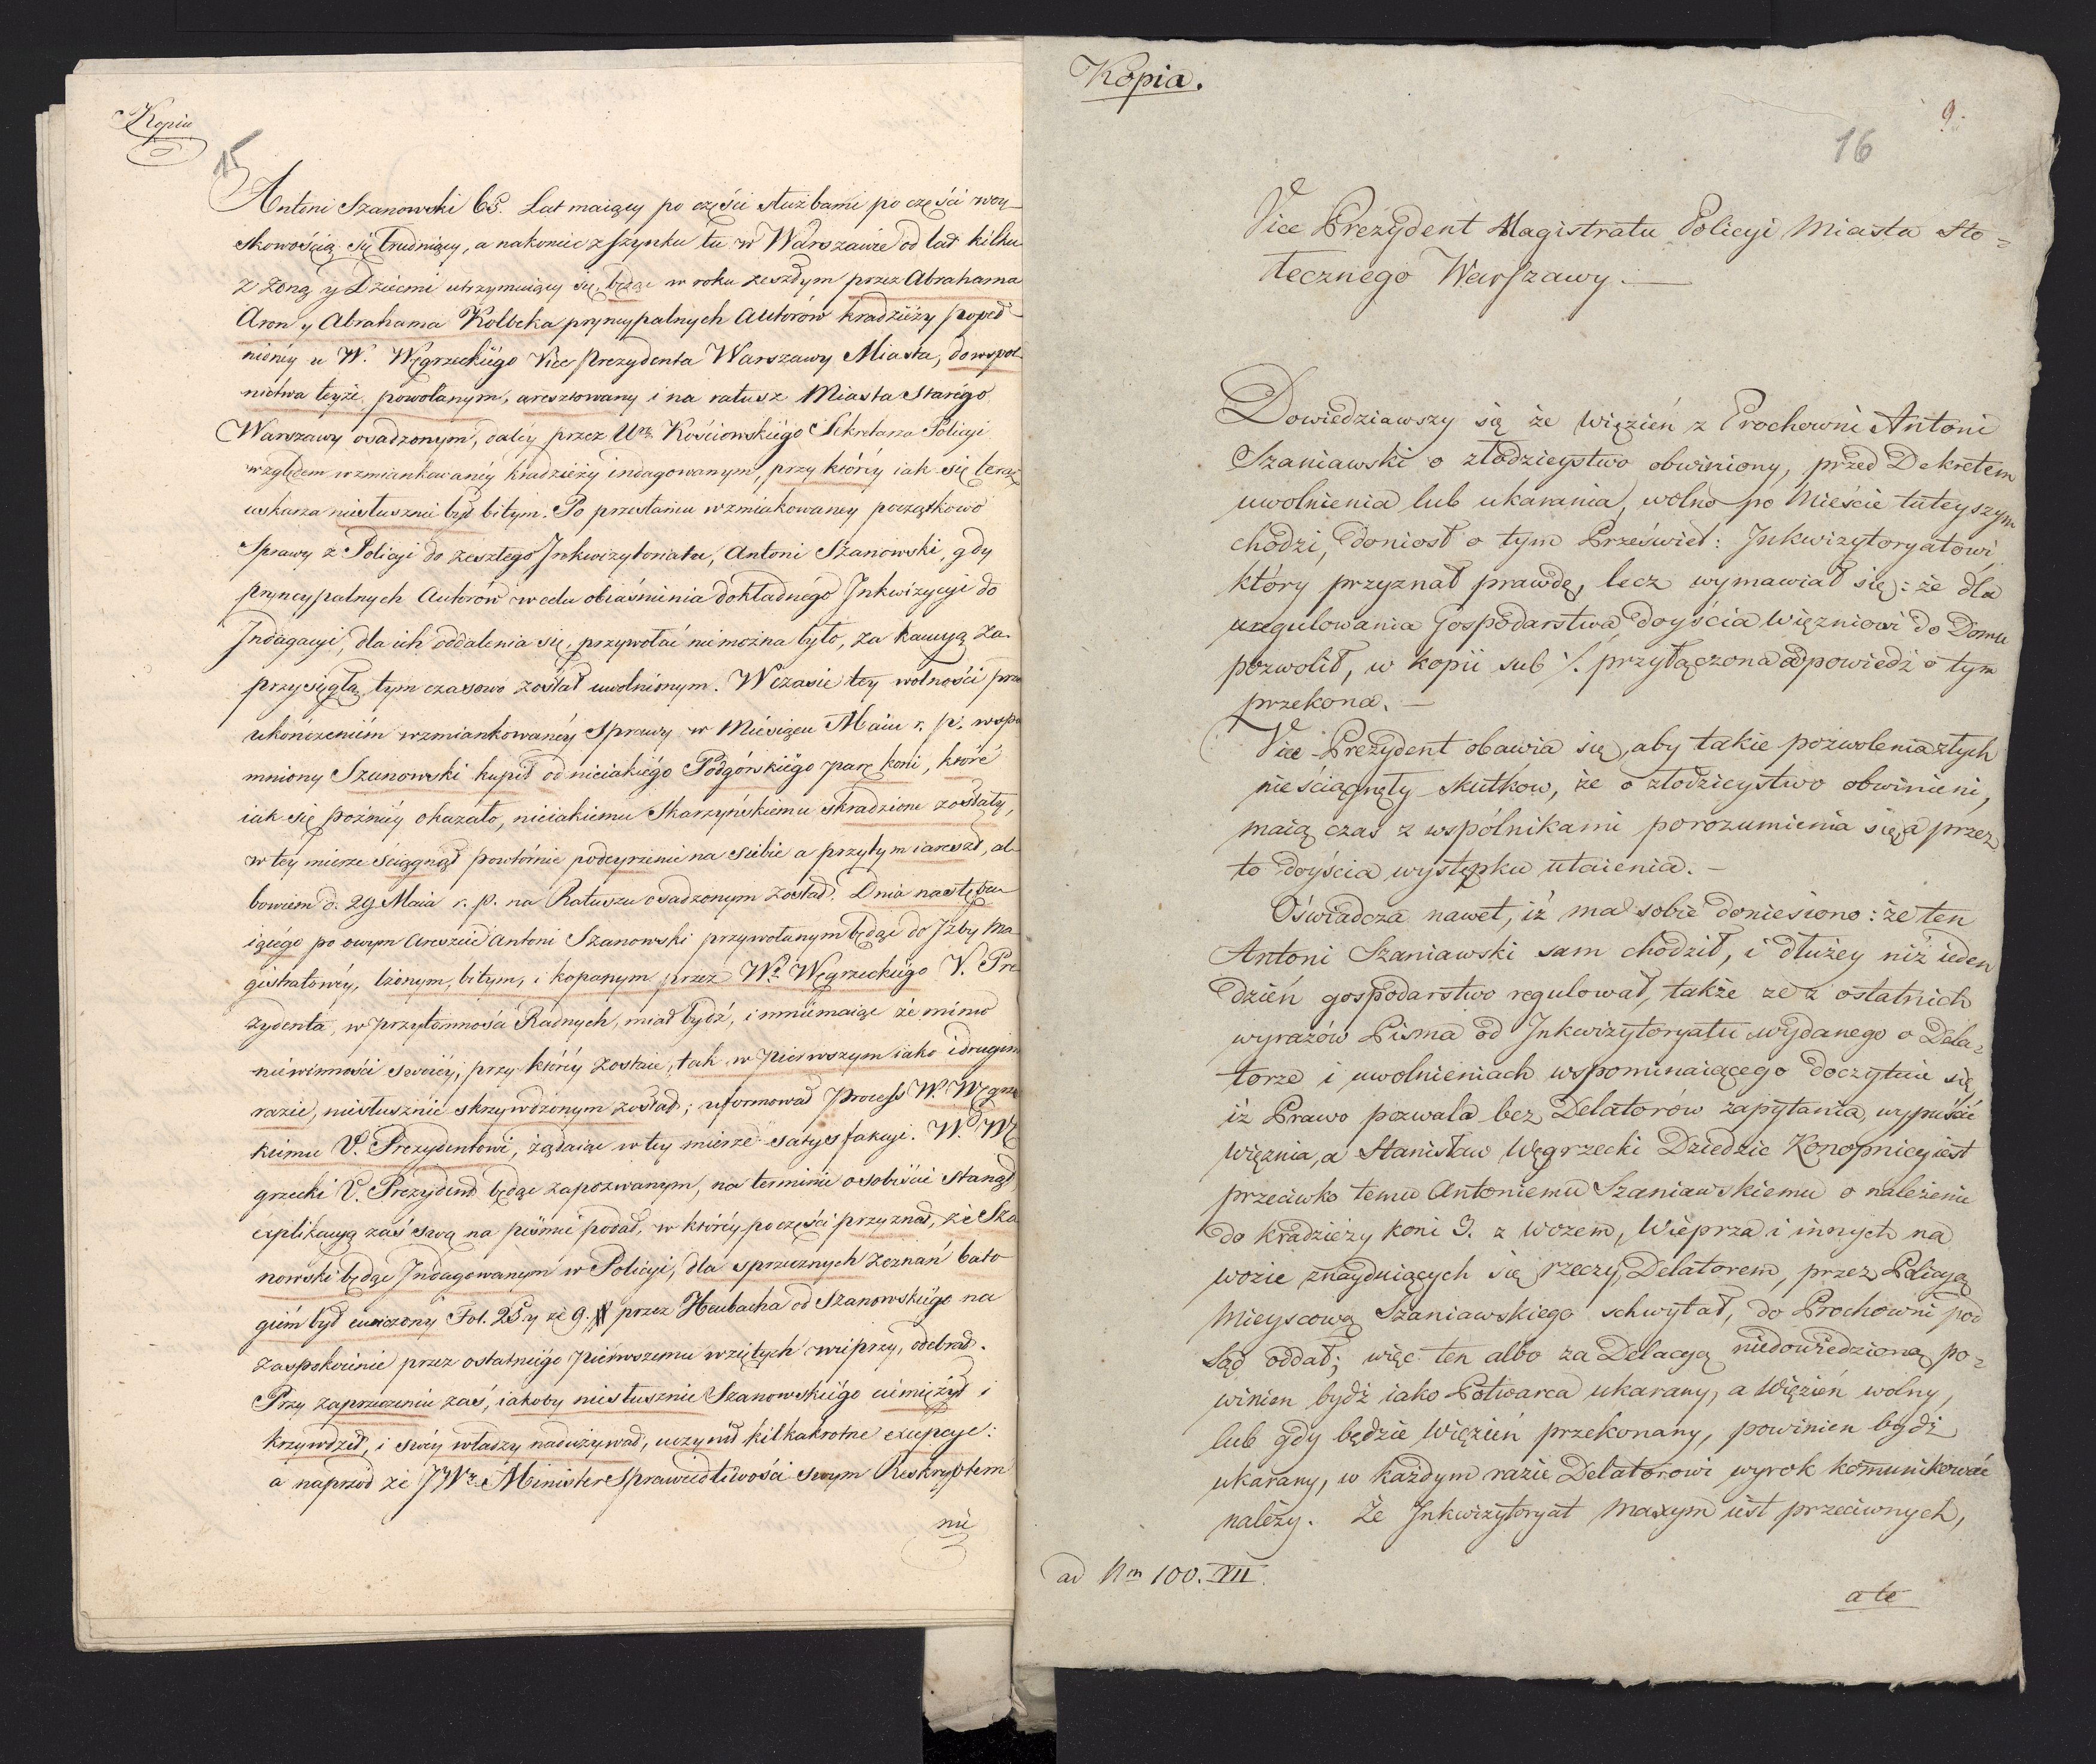 Kopia
15
Antoni Szanowski 65. Lat maiący po części służbami po części woy-
skowością się trudniący, a nakoniec z szynku tu w Warszawie od lat kilku
z żoną y Dziećmi utrzymuiący się, będąc w roku zeszłym przez Abrahama
Aron y Abrahama Kolbeka pryncypalnych Autorów kradzieży popeł-
nionéy u W. Węgrzeckiégo Vice Prezydenta Warszawy Miasta, do wspol-
nictwa teyże powołanym, aresztowany i na ratusz Miasta Starégo
Warszawy osadzonym, daléy przez Ur. Kościowskiégo Sekretarza Policyi
względem wzmiankowanéy kradzieży indagowanym, przy któréy iak się teraz
uskarza niesłusznie był bitym. Po przesłaniu wzmiakowaney początkowo
Sprawy z Policyi do zeszłego Inkwizytoriatu, Antoni Szanowski, gdy
pryncypalnych Autorów w celu obiaśnienia dokładnégo Inkwizycyi do
Indagacyi, dla ich oddalenia się, przywołać nie można było, za kaucyą za-
przysięgłą tym czasowo został uwolnionym. W czasie tey wolności prze
ukończeniém wzmiankowanéy Sprawy w Miésiącu Maiu r. p. wspo
mniony Szanowski kupił od nieiakiégo Podgórskiégo parę koni, które
iak się poźniéy okazało, nieiakiemu Skarzyńskiemu skradzione zostały,
w tey mierze ściągnął powtórnie podeyrzenie na siebie a przytym i areszt, al-
bowiem d. 29 Maia r. p. na Ratuszu osadzonym został. Dnia następu-
iącégo po owym Areszcie Antoni Szanowski przywołanym będąc do Izby Ma-
gistratowéy, lżonym, bitym, i kopanym przez W. Węgrzeckiégo V. Pre-
zydenta, w przytomności Radnych, miał bydź, i mniemaiąc że mimo
niewinności swoiéy, przy któréy zostaie, tak w pierwszym iako i drugim
razie, niesłusznie skrzywdzonym został; uformował Process W. Węgrze
kiému V. Prezydentowi, żądaiąc w tey mierze satysfakcyi. W. Wę
grzecki V. Prezydent będąc zapozwanym, na terminie osobiście stanął
explikacyą zaś swą na piśmie podał, w któréy po części przyznał, że Sza
nowski będąc Indagowanym w Policyi, dla sprzecznych zeznań bato-
giém był ćwiczony Fol. 25. y że 9 # przez Heubacha od Szanowskiégo na
zaspokoienie przez ostatniégo pierwszemu wziętych wieprzy, odebrał.
Przy zaprzeczeniu zaś, iakoby niesłusznie Szanowskiégo ciemiężył i
krzywdził, i swéy władzy nadużywał, uczynił kilkakrotne excepcye:
a naprzód że JW. Minister Sprawiedliwości swym Reskryptem
nie
Kopia.
9.
16
Vice Prezydent Magistratu Policyi Miasta Sto-
łecznego Warszawy. —
Dowiedziawszy się że więzień z Prochowni Antoni
Szaniawski o złodzieystwo obwiniony, przed Dekretem
uwolnienia lub ukarania, wolno po Mieście tuteyszym
chodzi, doniosł o tym Przeświet: Inkwizytoryatowi
który przyznał prawdę, lecz wymawiał się: że dla
uregulowania Gospodarstwa doyścia więzniowi do Domu
pozwolił, w kopii sub ·/. przyłączona odpowiedź o tym
przekona. —
Vice-Prezydent obawia się, aby takie pozwolenia złych
nie ściągnęły skutków, że o złodzieystwo obwinieni,
maią czas z wspólnikami porozumienia się, a przez
to doyścia występku utaienia. —
Oświadcza nawet, iż ma sobie doniesiono: że ten
Antoni Szaniawski sam chodził, i dłużey niż ieden
dzień gospodarstwo regulował, także że z ostatnich
wyrazów Pisma od Inkwizytoryatu wydanego o Dela-
torze i uwolnieniach wspominaiącego doczytuie się
iż Prawo pozwala bez Delatorów zapytania, wypuścić
więznia, a Stanisław Węgrzecki Dziedzic Konopnicy iest
przeciwko temu Antoniemu Szaniawskiemu o należenie
do kradzieży koni 3. z wozem, Wieprza i innych na
wozie znayduiących się rzeczy, Delatorem, przez Policyą
Mieyscową Szaniawskiego schwytał, do Prochowni pod
Sąd oddał; więc ten albo za Delacyą niedowiedzioną po-
winien bydź iako Potwarca ukarany, a Więzień wolny,
lub gdy będzie Więzień przekonany, powinien bydź
ukarany, w każdym razie Delatorowi wyrok komunikować
należy. Że Inkwizytoryat Maxym iest przeciwnych,
ad Nm 100. VII.
a te